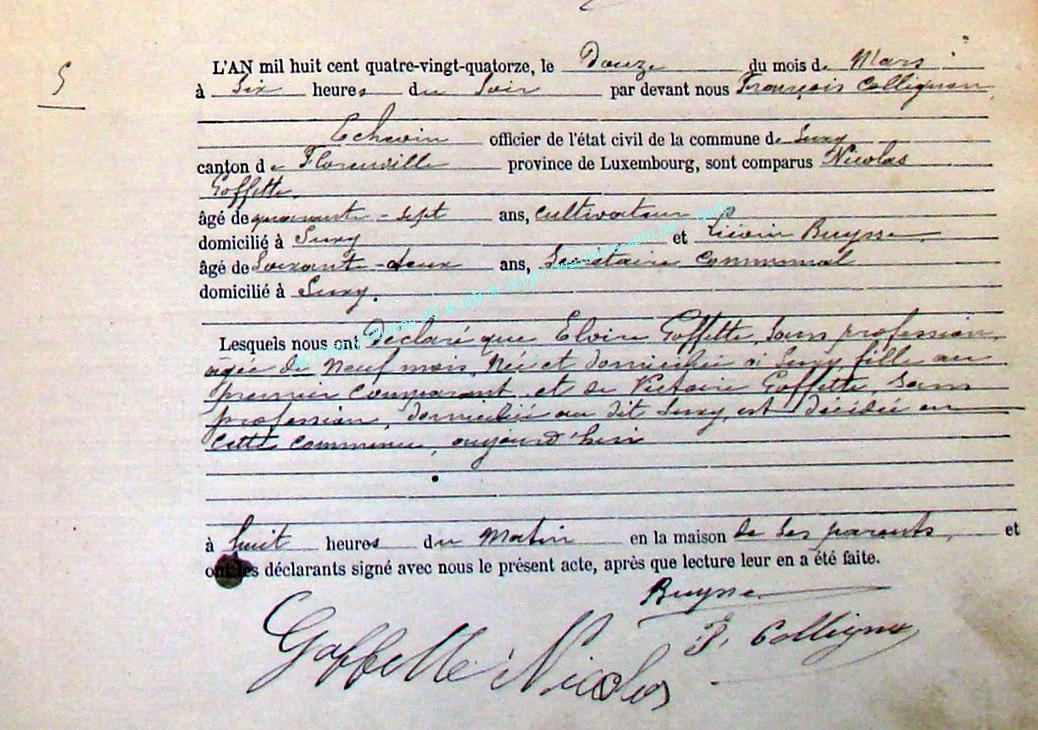 5
L'AN mil huit cent quatre-vingt-quatorze, le Douze du mois de Mars
à Six heures du Soir par devant nous François Collignon,
Echevin officier de l'état civil de la commune de Suxy
canton de Florenville province de Luxembourg, sont comparus Nicolas
Goffette
âgé de quarante-sept ans, cultivateur
domicilié à Suxy et Buysse
âgé de Soixante-deux ans, Secrétaire Communal
domicilié à Suxy.
Lesquels nous ont Déclaré que Elvire Goffette, Sans profession,
agée de Neuf mois, Née et domiciliée à Suxy fille du
premier comparant et de Victoire Goffette, Sans
profession, domiciliée au dit Suxy, est décédée en
cette commune, aujourd'hui
à huit heures du Matin en la maison de Ses parents, et
ont les déclarants signé avec nous le présent acte, après que lecture leur en a été faite.
Buysse
F. Collignon
Goffette Nicolas